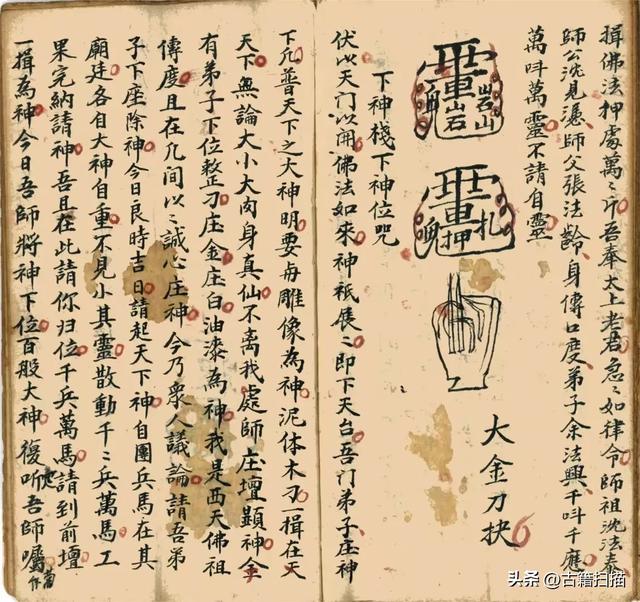 揖佛法押處萬〻叩吾奉太上老君急〻如律令師祖沈法泰
師公沈見憑師父張法齡身傳口度弟子余法興千呌千應
萬呌萬靈不請自靈
大金刀抉
下神棧下神位咒
伏以天門以開佛法如來神祇展〻即下天台吾門弟子庄神
下凡普天下之大神明要冉雕像為神泥体木刁一揖在天
天下無論大小大肉身真仙不离我處師庄壇顕神全
有弟子下位整刁庄金庄白油漆為神我是西天佛祖
傳度且在凢間以〻誠心庄神今乃衆人議論請吾弟
子下座除神今日良時吉日請起天下神自團兵馬在其
廟廷各自大神自重不見小其靈散動千〻兵萬馬工
果完納請神吾且在此請你归位千兵萬馬請到前壇
一揖為神今日吾師將神下位百般大神復听吾師囑
头条 @古籍扫描